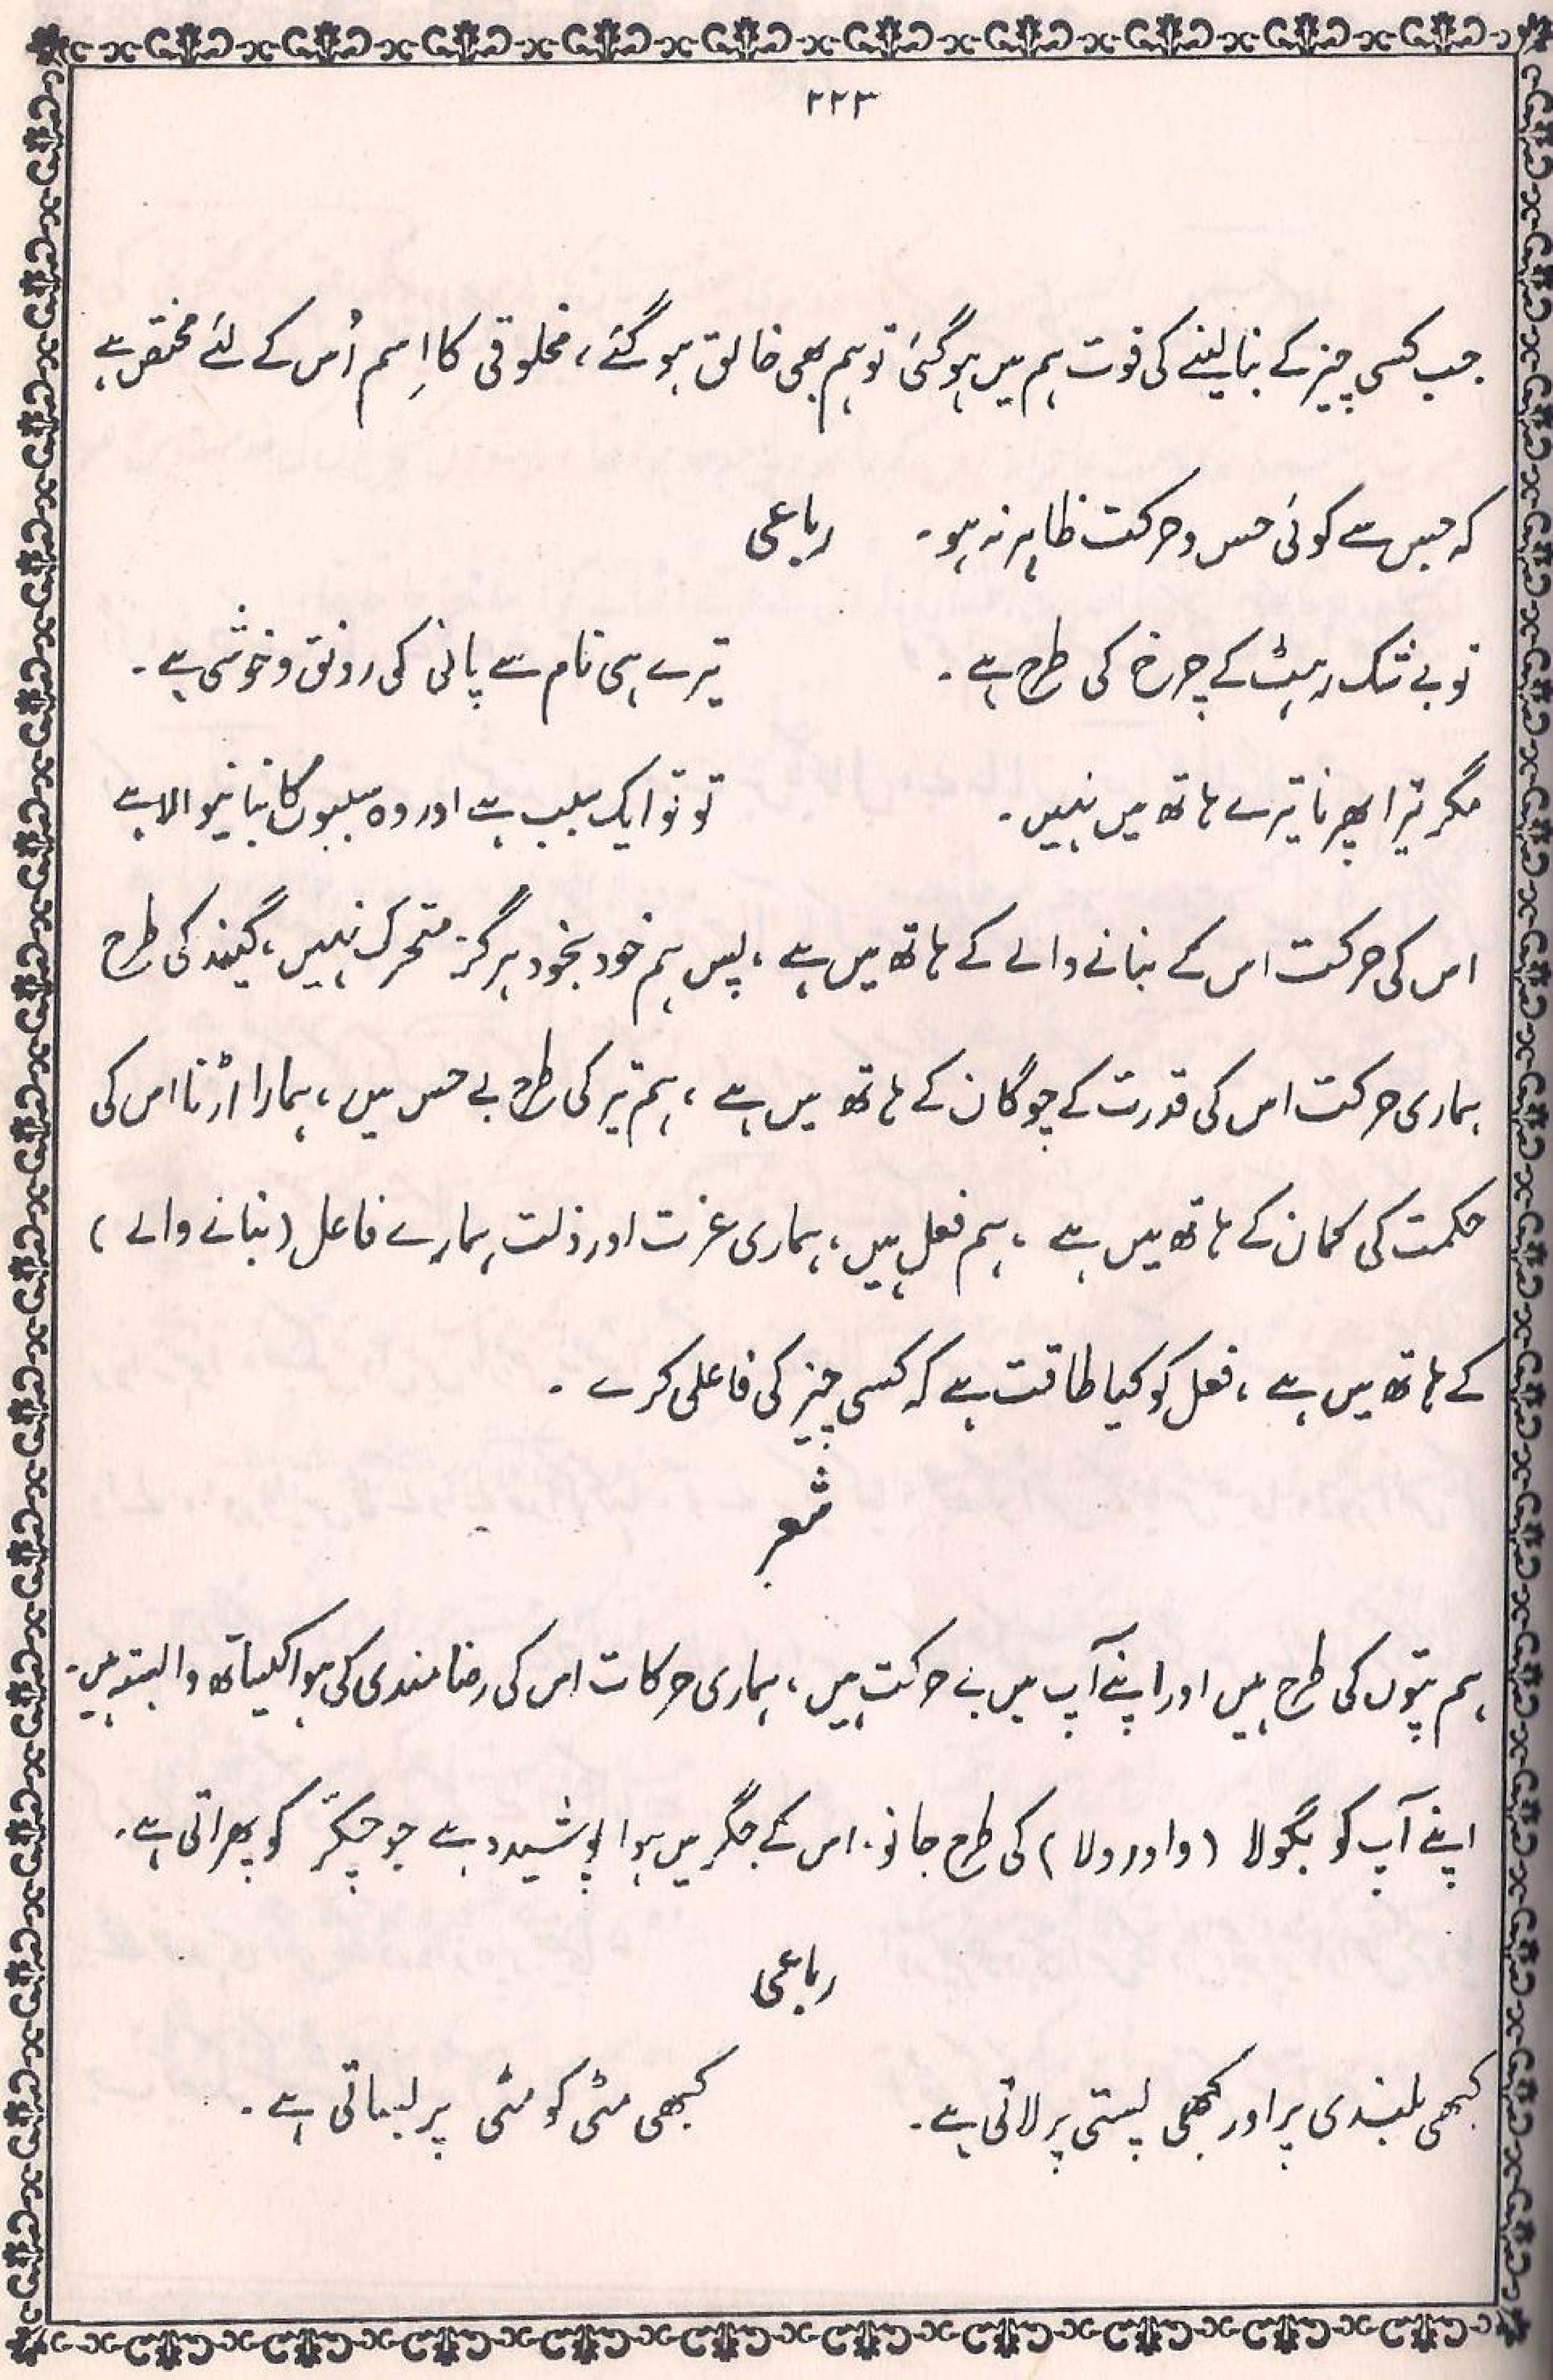 ۲۲۳
جب کسی چیز کے بنا لینے کی قوت ہم میں ہو گئی تو ہم بھی خالق ہو گئے، مخلوقی کا اِسم اُس کے لئے مختص ہے
کہ جس سے کوئی حس و حرکت ظاہر نہ ہو۔ رباعی
تو بے شک رہٹ کے چرخ کی طرح ہے۔ تیرے ہی نام سے پانی کی رونق و خوشی ہے۔
مگر تیرا پھرنا تیرے ہاتھ میں نہیں۔ تو تو ایک سبب ہے اور وہ سببوں کا بنانیوالا ہے
اس کی حرکت اس کے بنانے والے کے ہاتھ میں ہے، پس ہم خود بخود ہرگز متحرک نہیں، گیند کی طرح
ہماری حرکت اس کی قدرت کے چوگان کے ہاتھ میں ہے، ہم تیر کی طرح بے حس ہیں، ہمارا اڑنا اس کی
حکمت کی کمان کے ہاتھ میں ہے، ہم فعل ہیں، ہماری عزت اور ذلت ہمارے فاعل (بنانے والے)
کے ہاتھ میں ہے، فعل کو کیا طاقت ہے کہ کسی چیز کی فاعلی کرے۔
شعر
ہم پتوں کی طرح ہیں اور اپنے آپ میں بے حرکت ہیں، ہماری حرکات اس کی رضامندی کی ہوا کیساتھ وابستہ ہیں۔
اپنے آپ کو بگولا (واورولا) کی طرح جانو۔ اس کے جگر میں ہوا پوشیدہ ہے جو چکّر کو پھراتی ہے۔
رباعی
کبھی بلندی پر اور کبھی پستی پر لاتی ہے۔ کبھی مٹی کو مٹی پر لیجاتی ہے۔